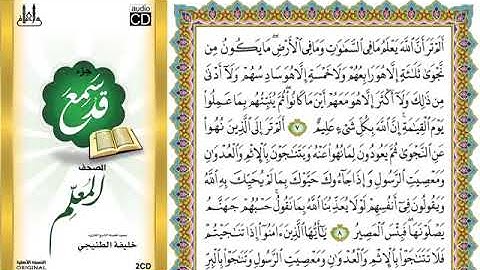 audio
CD
جزء
قد سمع
المصحف
المعلم
خليفة الطنيجي
2CD
النسخة الأصلية
ORIGINAL
أَلَمْ تَرَ أَنَّ اللَّهَ يَعْلَمُ مَا فِي السَّمَاوَاتِ وَمَا فِي الْأَرْضِ مَا يَكُونُ مِن
نَّجْوَىٰ ثَلَاثَةٍ إِلَّا هُوَ رَابِعُهُمْ وَلَا خَمْسَةٍ إِلَّا هُوَ سَادِسُهُمْ وَلَا أَدْنَىٰ
مِن ذَٰلِكَ وَلَا أَكْثَرَ إِلَّا هُوَ مَعَهُمْ أَيْنَ مَا كَانُوا ثُمَّ يُنَبِّئُهُم بِمَا عَمِلُوا
يَوْمَ الْقِيَامَةِ إِنَّ اللَّهَ بِكُلِّ شَيْءٍ عَلِيمٌ ٧ أَلَمْ تَرَ إِلَى الَّذِينَ نُهُوا
عَنِ النَّجْوَىٰ ثُمَّ يَعُودُونَ لِمَا نُهُوا عَنْهُ وَيَتَنَاجَوْنَ بِالْإِثْمِ وَالْعُدْوَانِ
وَمَعْصِيَتِ الرَّسُولِ وَإِذَا جَاءُوكَ حَيَّوْكَ بِمَا لَمْ يُحَيِّكَ بِهِ اللَّهُ
وَيَقُولُونَ فِي أَنفُسِهِمْ لَوْلَا يُعَذِّبُنَا اللَّهُ بِمَا نَقُولُ حَسْبُهُمْ جَهَنَّمُ
يَصْلَوْنَهَا فَبِئْسَ الْمَصِيرُ ٨ يَا أَيُّهَا الَّذِينَ آمَنُوا إِذَا تَنَاجَيْتُمْ
فَلَا تَتَنَاجَوْا بِالْإِثْمِ وَالْعُدْوَانِ وَمَعْصِيَتِ الرَّسُولِ وَتَنَاجَوْا بِالْبِرِّ